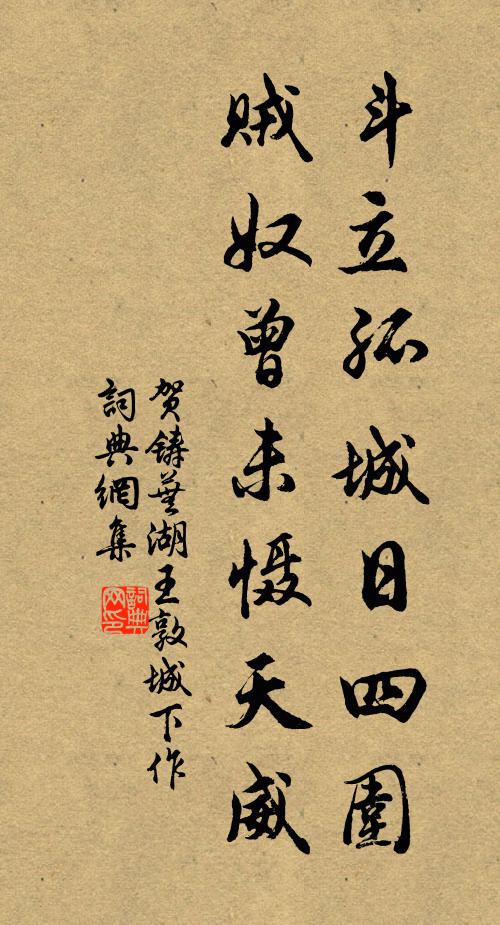 斗立孤城日四圍
賊奴曾未慑天威
贺鑄蕪湖王敦城下作
詞典網集
詞典网印